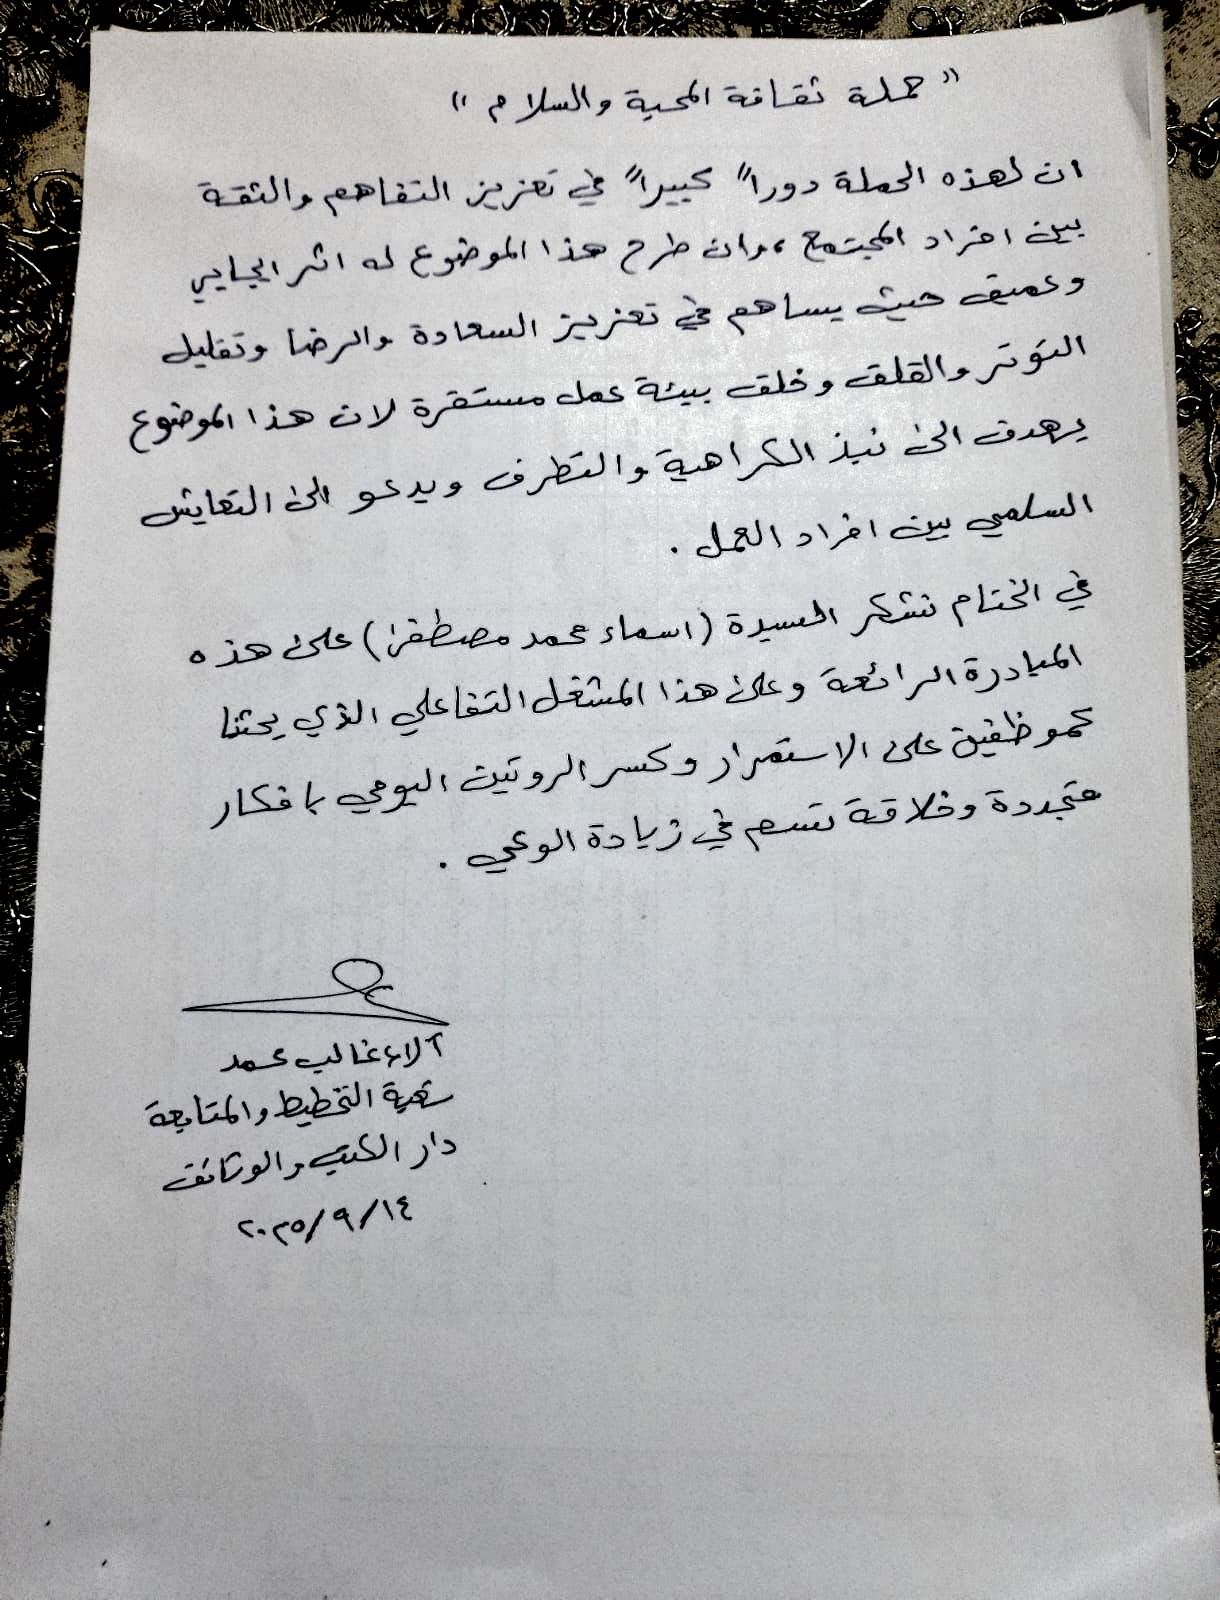 " حملة ثقافة المحبة والسلام "
ان لهذه الحملة دوراً كبيراً في تعزيز التفاهم والثقة
بين افراد المجتمع ، وان طرح هذا الموضوع له اثر ايجابي
وعميق حيث يساهم في تعزيز السعادة والرضا وتقليل
التوتر والقلق وخلق بيئة عمل مستقرة لان هذا الموضوع
يهدف الى نبذ الكراهية والتطرف ويدعو الى التعايش
السلمي بين افراد العمل .
في الختام نشكر السيدة (اسماء محمد مصطفى) على هذه
المبادرة الرائعة وعلى هذا المشغل التفاعلي الذي يحثنا
كموظفين على الاستمرار وكسر الروتين اليومي بافكار
متجددة وخلاقة تسهم في زيادة الوعي .
آلاء غالب محمد
شعبة التخطيط والمتابعة
دار الكتب والوثائق
٢٠٢٥/٩/١٤